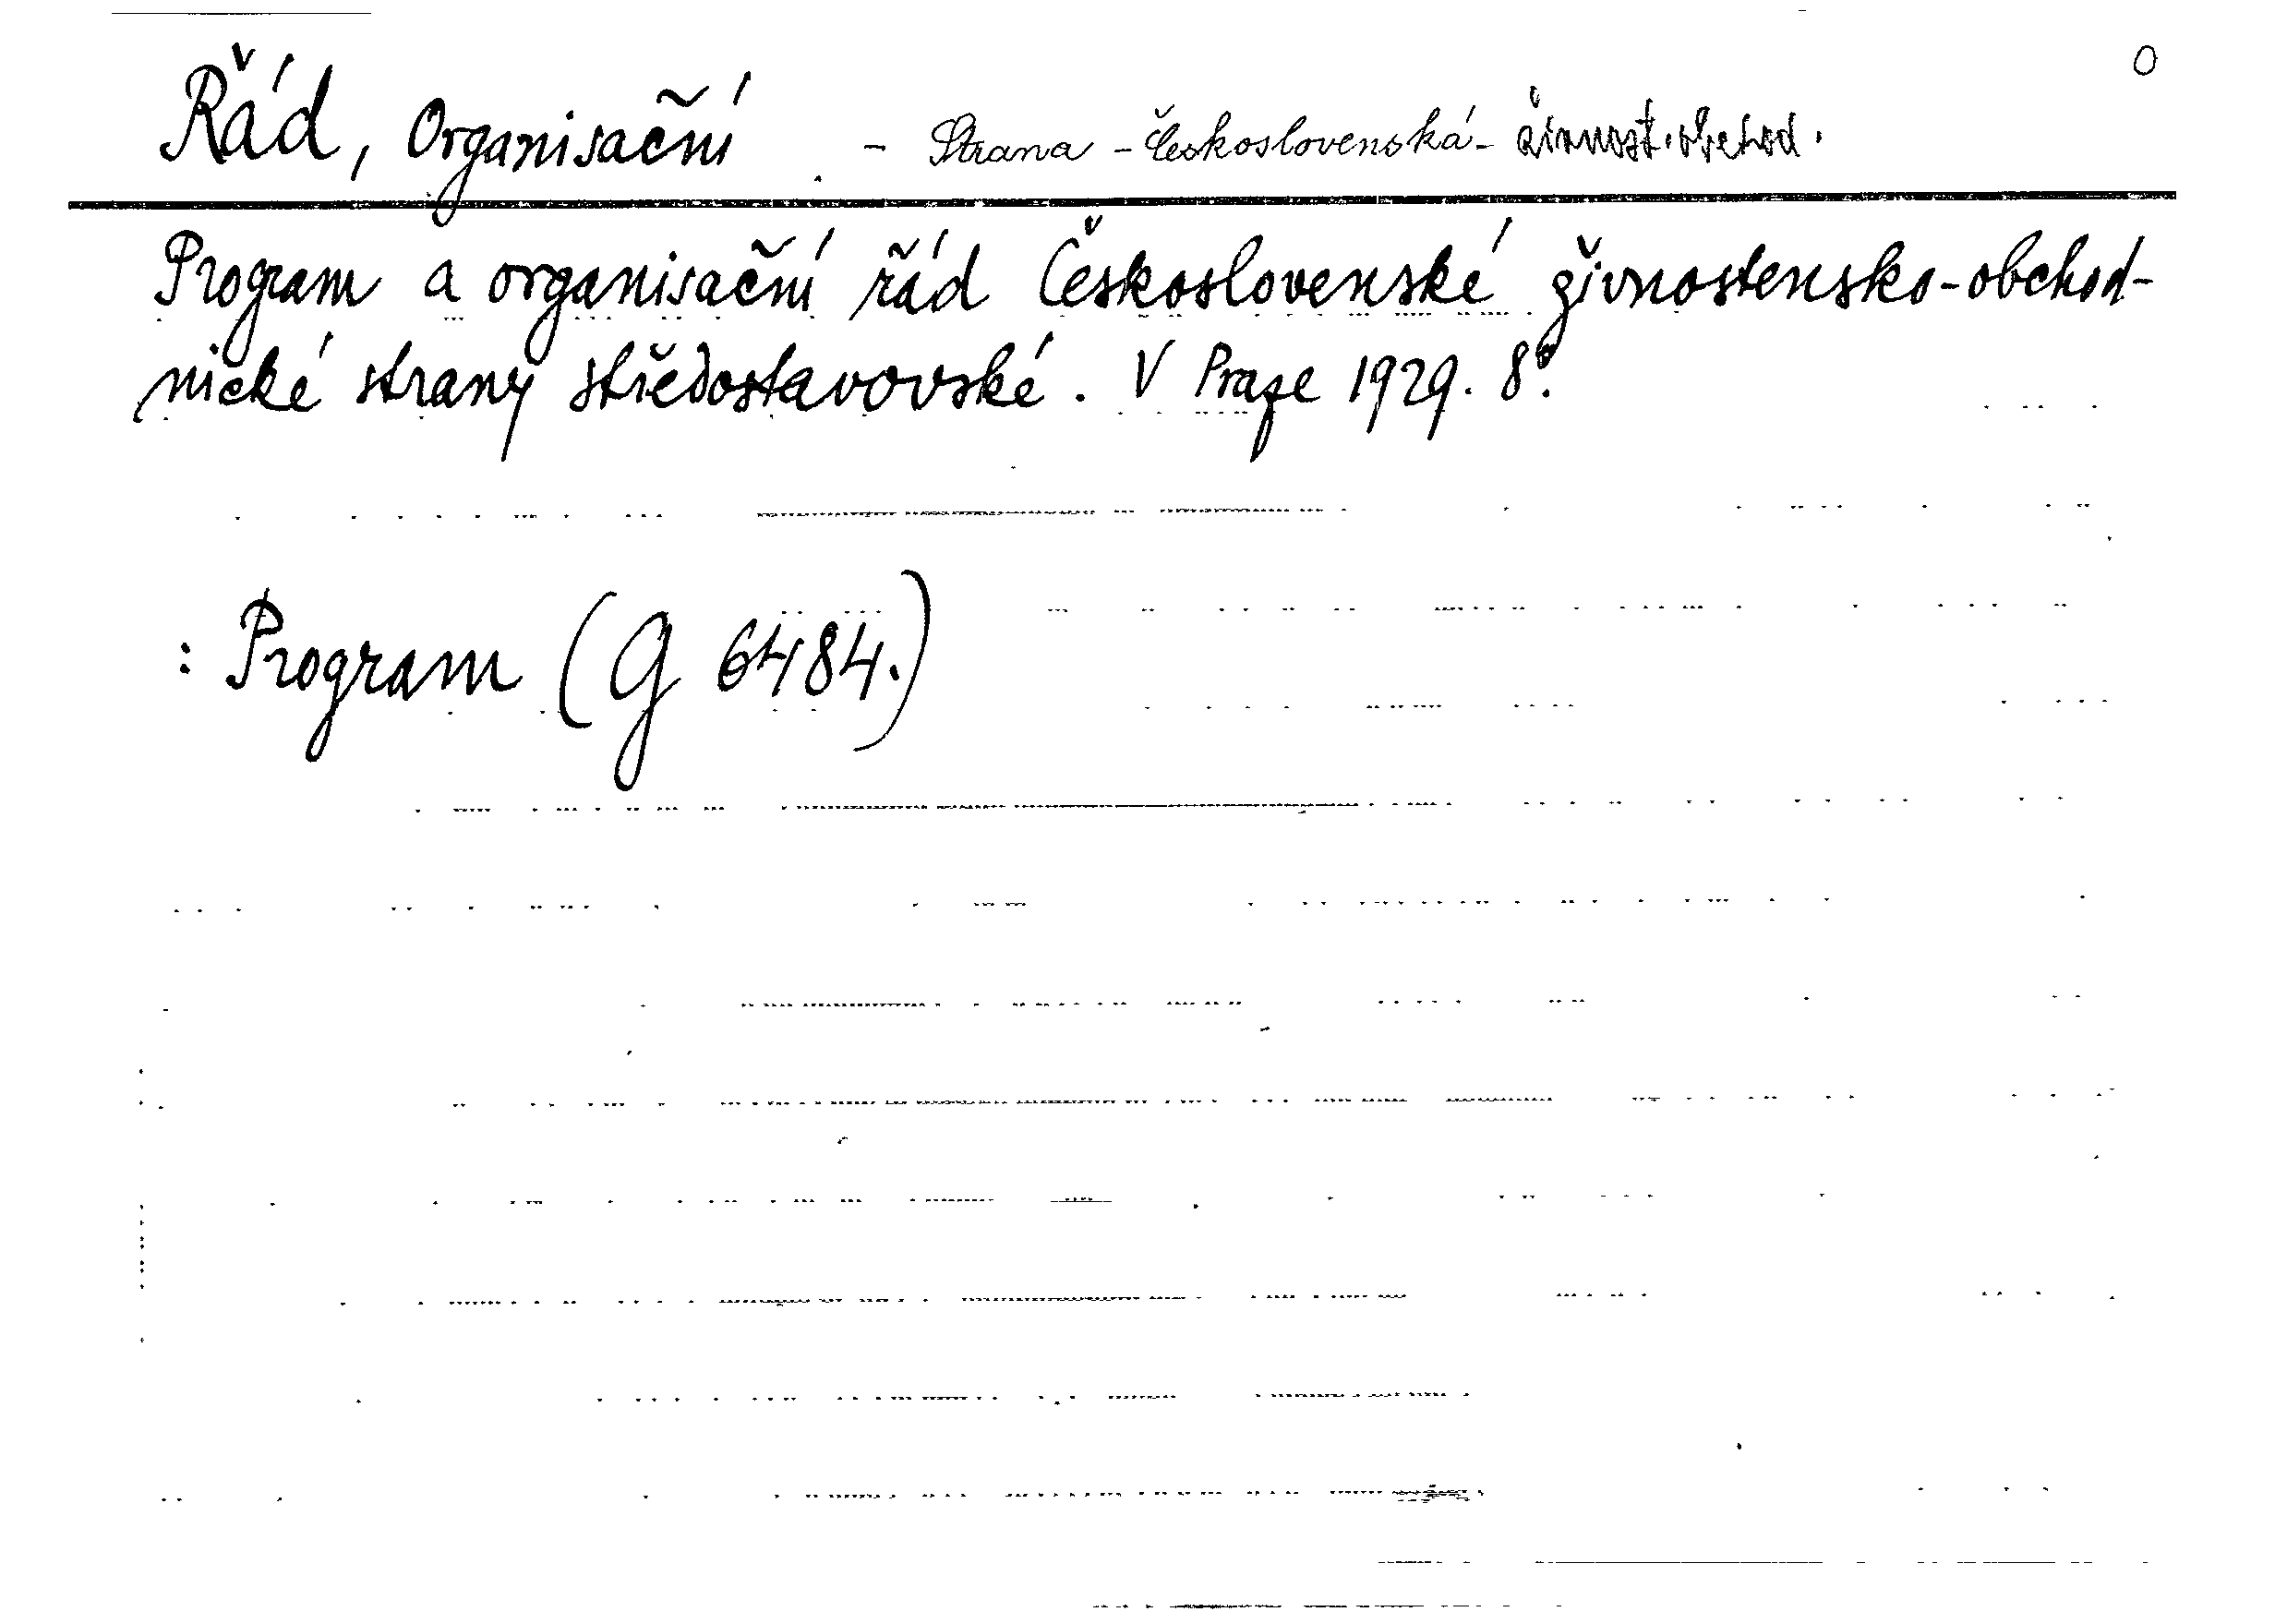 O
Řád, Organisační - Strana - Československá - živnost. obchod.
Program a organisační řád Československé živnostensko-obchod-
nické strany středostavovské. V Praze 1929. 8°.
: Program (G 6484.)